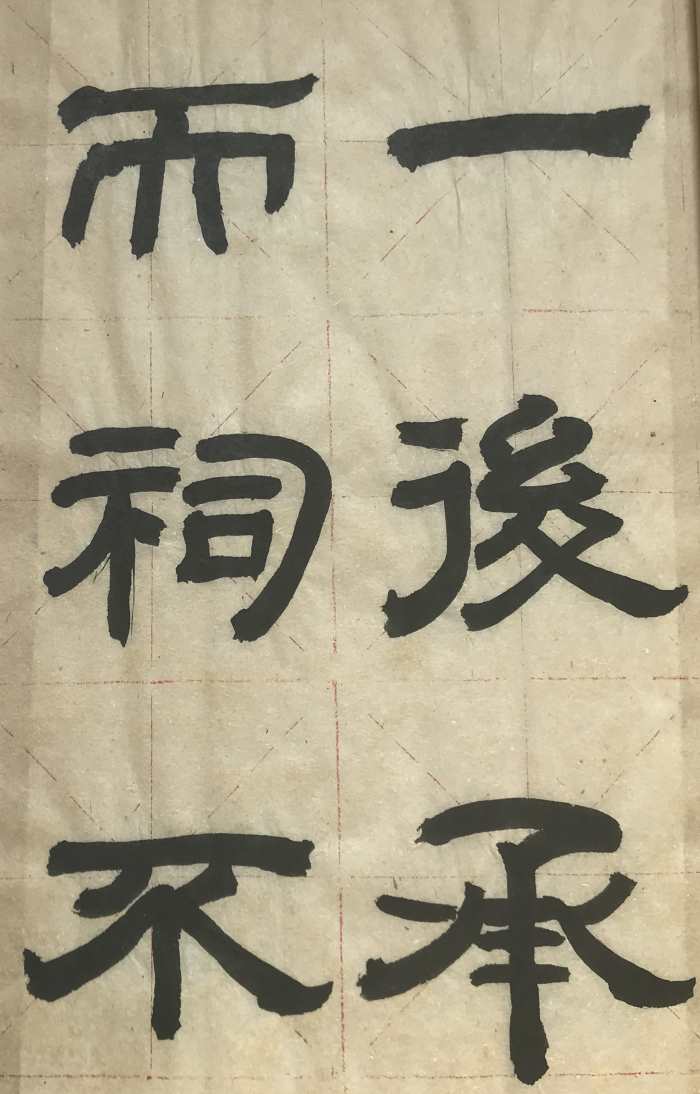 一後承
而祠不